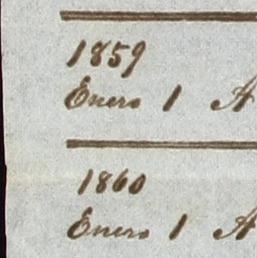 1859
Enero 1 A
1860
Enero 1 A